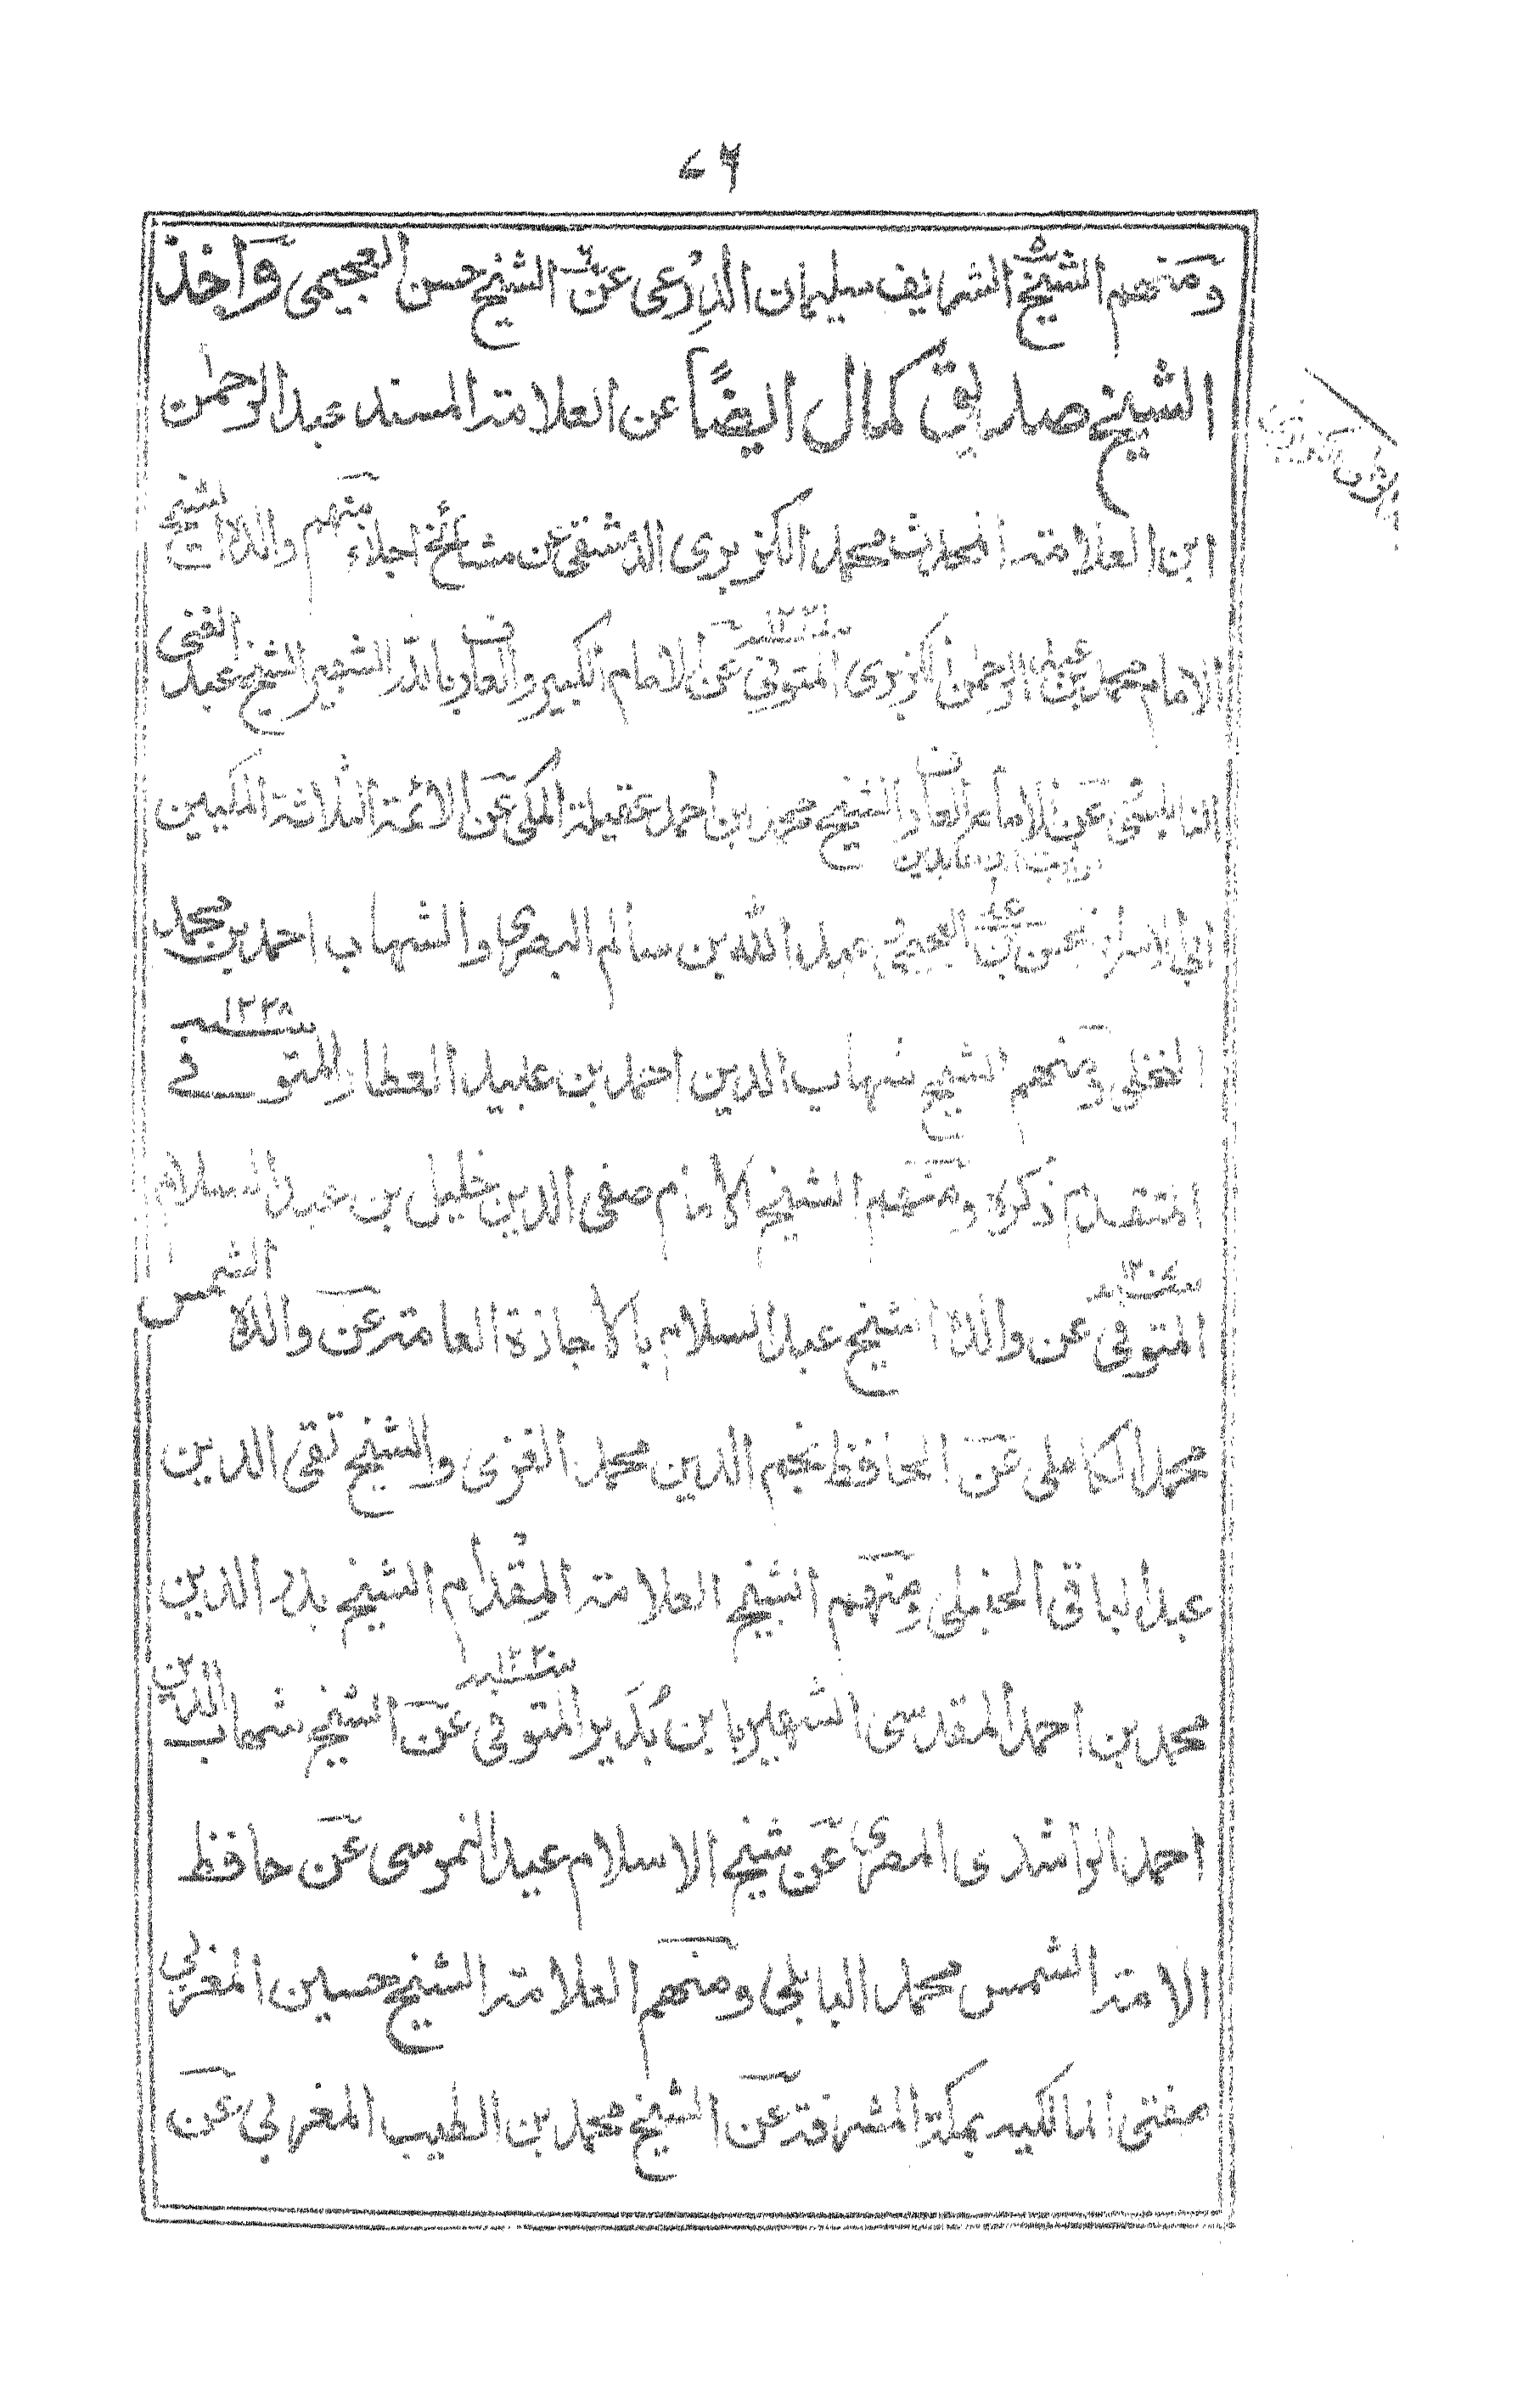 ٤٦
ومنهم الشيخ الشريف سليمان الدرعى عن الشيخ حسن العجيمى واخذ
الشيخ صديق كمال ايضًا عن العلامة المسند عبد الرحمٰن
ابن العلامة المحدث محمد الكزبرى الدمشقى عن مشائخ اجلاء منهم والده الشيخ
الامام محمد بن عبد الرحمن الكزبرى المتوفى سنة ١٢٢١ عن الامام الكبير والعارف بالله الشهير الشيخ عبد الغنى
النابلسى عن الامام العارف الشيخ محمد بن احمد عقيلة المكى عن الائمة الثلاثة المكيين
ابى الاسرار حسن بن على العجيمى وعبد الله بن سالم البصرى والشهاب احمد بن محمد
النخلى ومنهم الشيخ شهاب الدين احمد بن عبيد العطار المتوفى سنة ١٢٢٨
المتقدم ذكره ومنهم الشيخ الامام صفى الدين خليل بن عبد السلام
المتوفى سنة ١٢٠٧ عن والده الشيخ عبد السلام بالاجازة العامة عن والده الشمس
محمد الكاملى عن الحافظ نجم الدين محمد الغزى والشيخ تقى الدين
عبد الباقى الحنبلى ومنهم الشيخ العلامة المقدام الشيخ بدر الدين
محمد بن احمد المقدسى الشهير بابن بُدَير المتوفى سنة ١٢٢٠ عن الشيخ شهاب الدين
احمد الراشدى المصرى عن شيخ الاسلام عيد النمرسى عن حافظ
الامة الشمس محمد البابلى ومنهم العلامة الشيخ حسين المغربى
مفتى المالكيه بمكة المشرفة عن الشيخ محمد بن الطيب المغربى عن